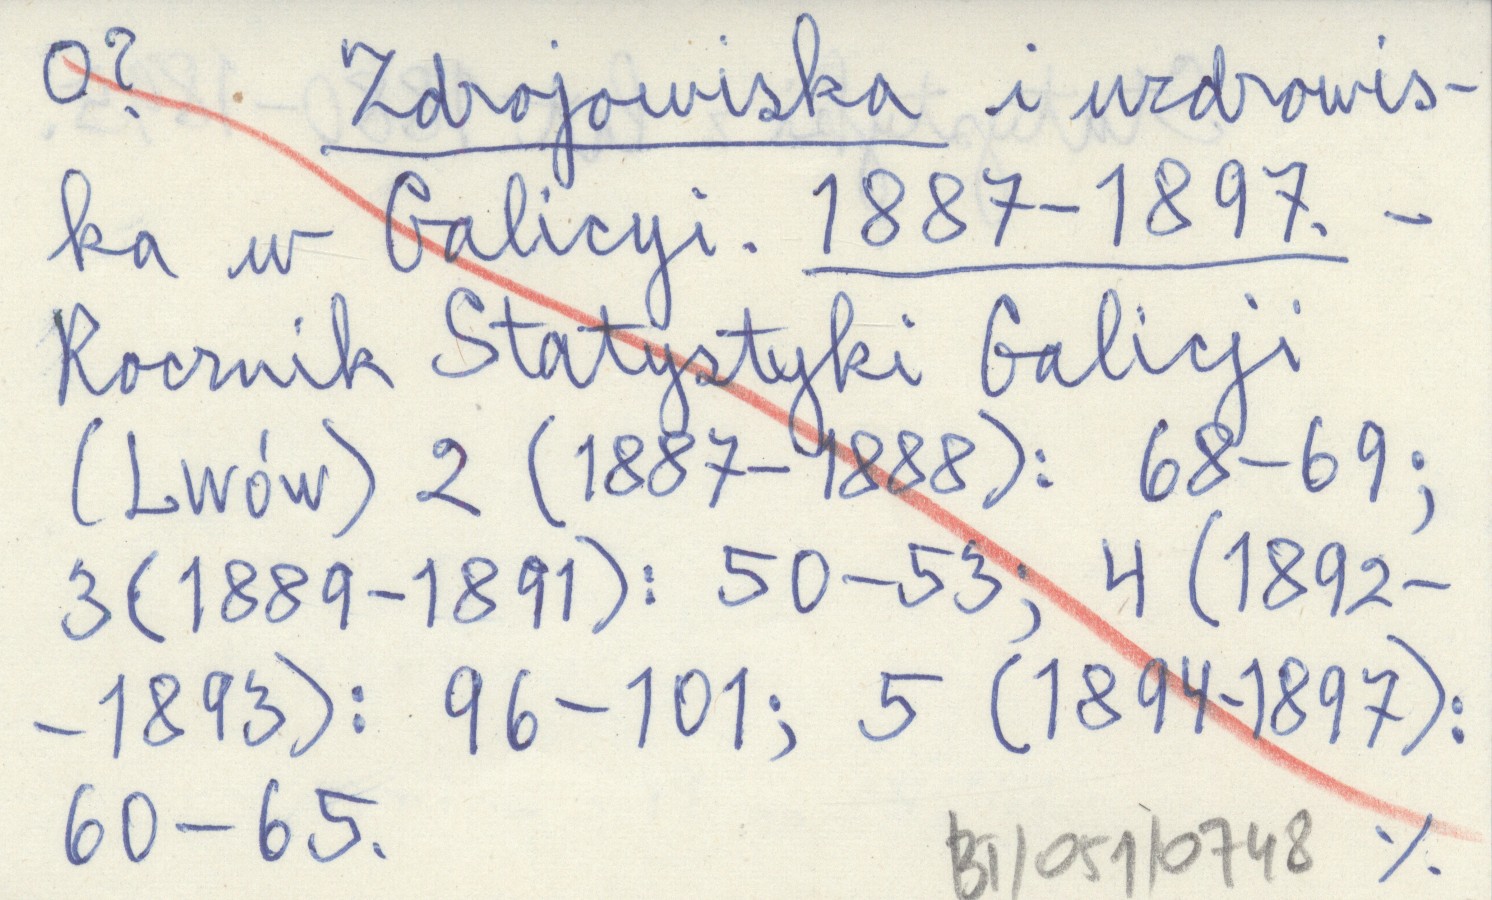 O? Zdrojowiska i uzdrowis-
ka w Galicyi. 1887-1897. -
Rocznik Statystyki Galicji
(Lwów) 2 (1887-1888): 68-69;
3(1889-1891): 50-53; 4 (1892-
-1893): 96-101; 5 (1894-1897):
60-65.
BI/051/0748 ./.